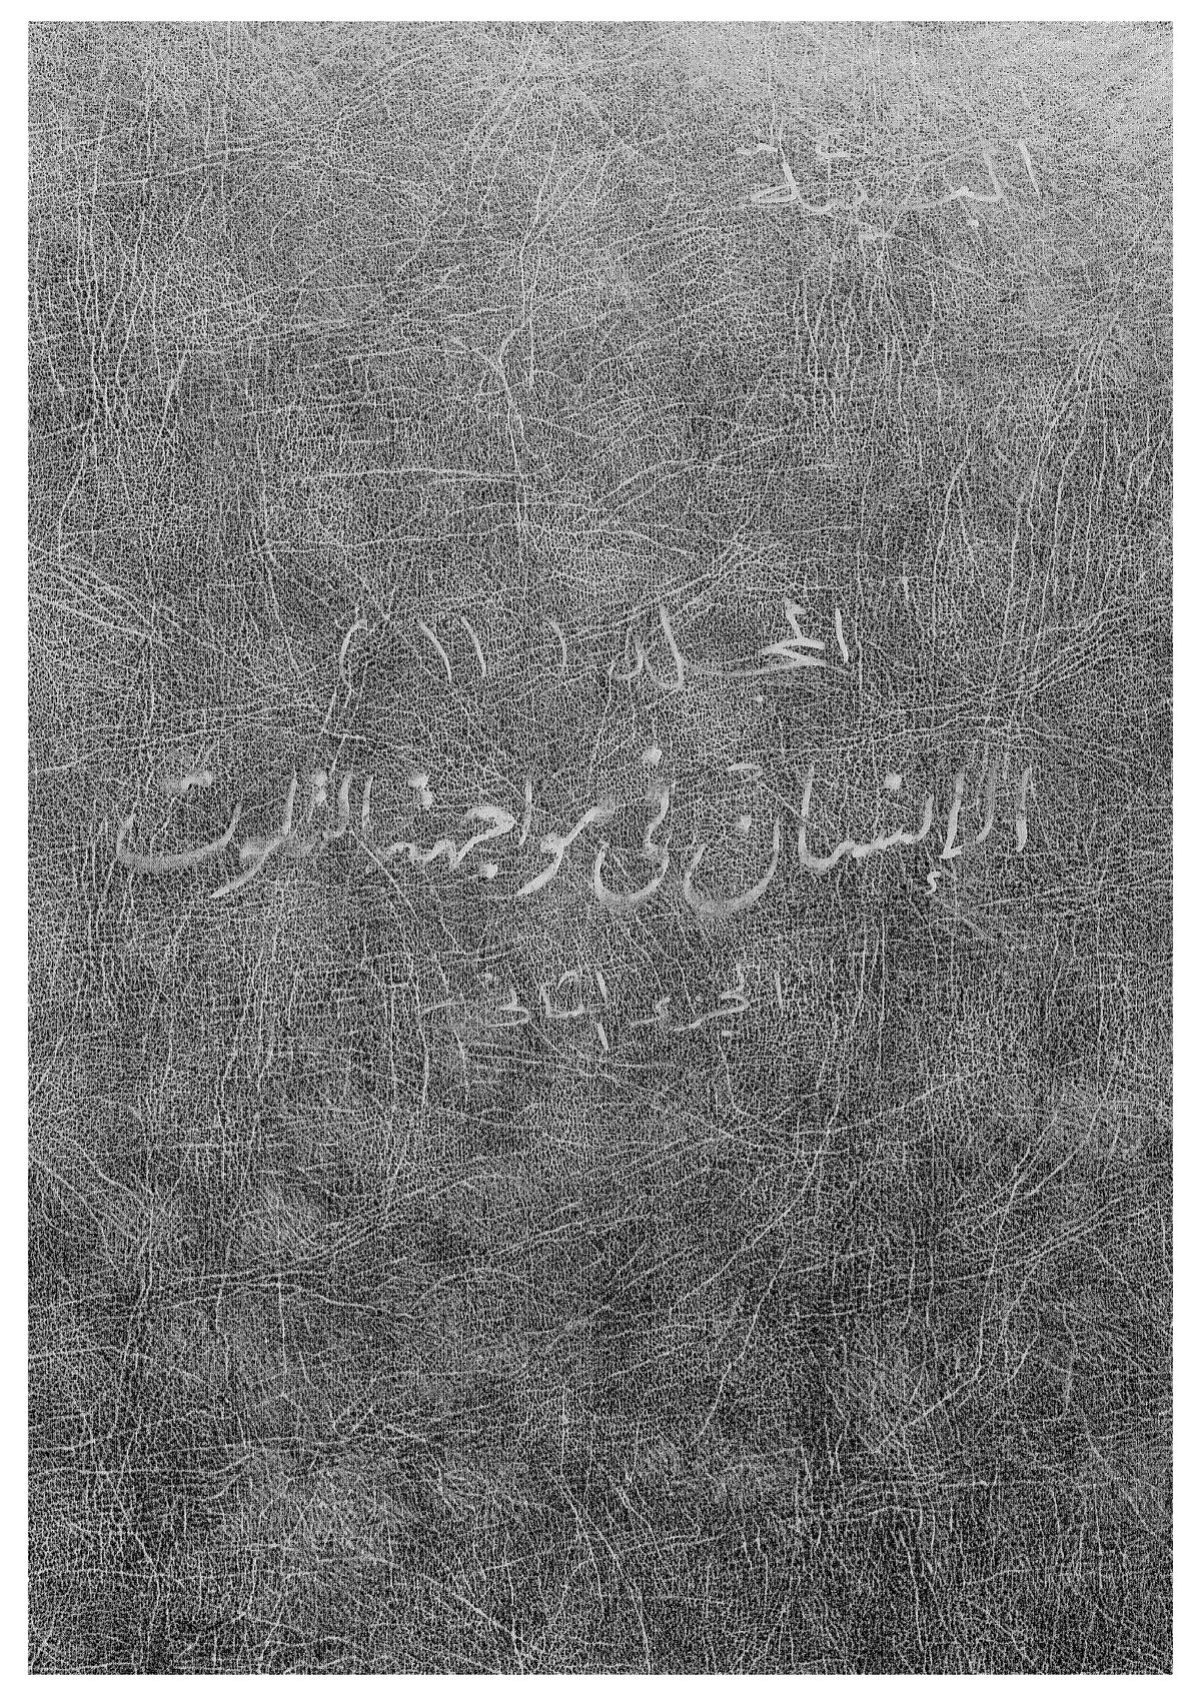 البيئة
المجلد
الإنسان في مواجهة التلوث
الجزء الثاني